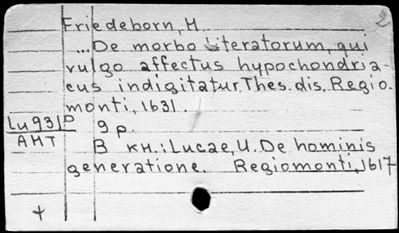 2
Friedeborn, H
...De morbo literatorum, qui
vulgo affectus hypochondria-
cus indigitatur. Thes. dis. Regio-
monti, 1631.
Lu931b 9 p.
АНТ В кн.: Lucae, U. De hominis
generatione. Regiomonti, 1617
+